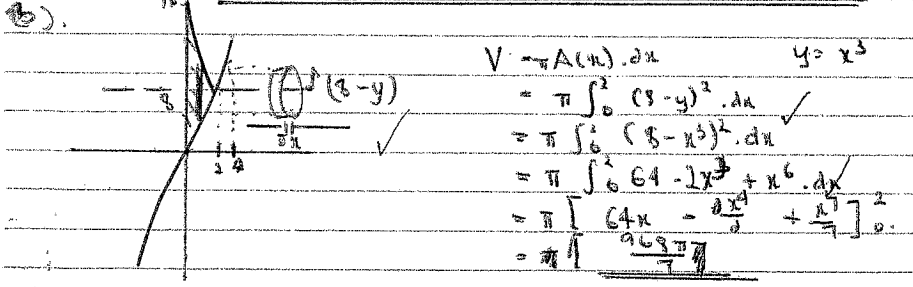 b).
8
(8-y)
2
V = π A(x).dx    y = x³
= π ∫₀² (8-y)².dx
= π ∫₀² (8-x³)².dx
= π ∫₀² 64 - 2x³ + x⁶.dx
= π [ 64x - + x⁷/7 ]₀².
= π [ 968π/7 ]